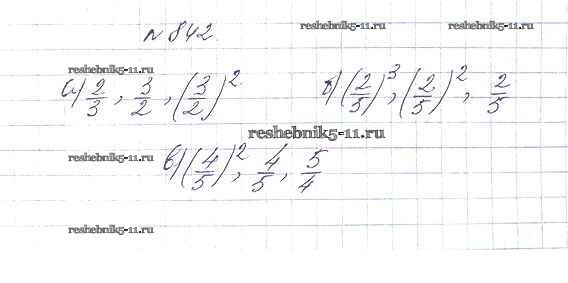 № 842.
reshebnik5-11.ru reshebnik5-11.ru
reshebnik5-11.ru
а) 2/3, 3/2, (3/2)² б) (2/5)³, (2/5)², 2/5
reshebnik5-11.ru
в) (4/5)², 4/5, 5/4
reshebnik5-11.ru reshebnik5-11.ru
reshebnik5-11.ru